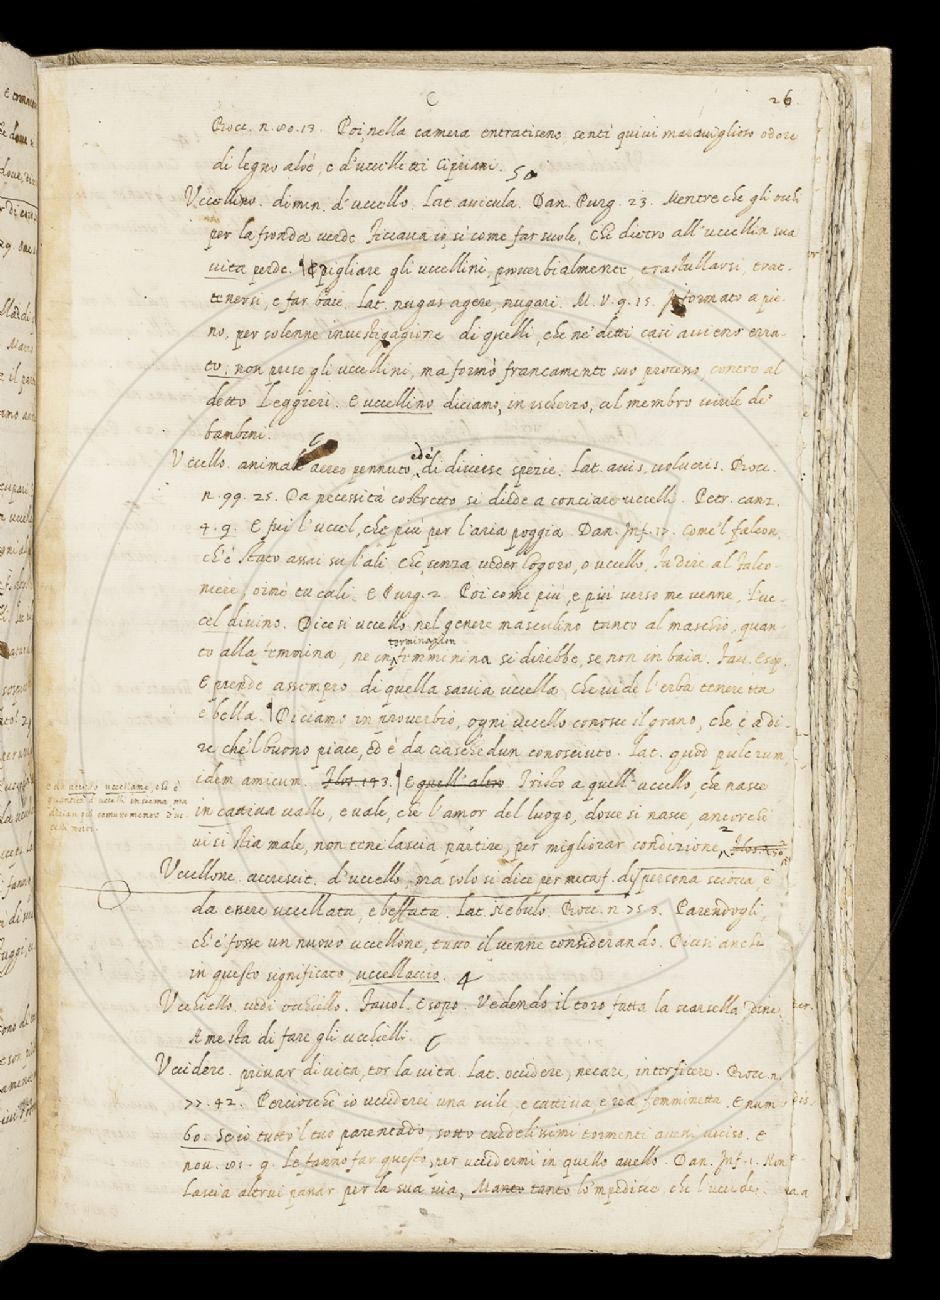 C
26
Bocc. n. 80. 13. Poi nella camera entratiseno, senti quivi maraviglioso odore
di legno aloè, e d'uccelletti Cipriani.
50
Uccellino. dimin. d'uccello. Lat. avicula. Dan. Purg. 23. Mentre che gli occhi
per la fronda verde ficcava io, si come far suole, Chi dietro all'uccellin sua
vita perde. Pigliare gli uccellini, proverbialmente trastullarsi, trat-
tenersi, e far baie. Lat. nugas agere, nugari. M. V. 9. 15. formato a pie-
no, per solenne investigagione di quelli, che ne' detti casi avieno erra-
to: non prese gli uccellini, ma formò francamente suo processo contro al
detto Leggieri. E uccellino diciamo, in ischerzo, al membro virile de'
bambini.
6
Uccello. animale aereo pennuto, ed è di diverse spezie. Lat. avis, volucris. Bocc.
n. 99. 25. Da necessità costretto si diede a conciare uccelli. Petr. canz.
4. 9. E fui l'uccel, che più per l'aria poggia. Dan. Inf. 17. Come'l falcon,
ch'è stato assai su l'ali Che, senza veder logoro, o uccello, Fa dire al falco-
niere, oimè tu cali. E Purg. 2. Poi come più, e più verso me venne, L'uc-
cel divino. Dicesi uccello nel genere masculino tanto al maschio, quan-
to alla femmina, ne in terminazion femminina si direbbe, se non in baia. Fav. Esop.
E prende assempro di quella savia uccella, che vide l'erba teneretta
e bella. Diciamo in proverbio, ogni uccello conosce il grano, che è a di-
re che'l buono piace, ed è da ciaschedun conosciuto. Lat. quod pulcrum,
idem amicum. Flos. 143. E quell'altro Tristo a quell'uccello, che nasce
in cattiva valle, e vale, che l'amor del luogo, dove si nasce, ancorchè
vi si stia male, non tene lascia partire, per migliorar condizione. 2
Uccellone. accrescit. d'uccello, ma solo si dice per metaf. di persona sciocca, e
da essere uccellata, e beffata. Lat. Nebulo. Bocc. n. 75 3. Parendogli,
ch'e' fosse un nuovo uccellone, tutto il venne considerando. Dicesi anche
in questo significato, uccellaccio.
4
Ucchiello. vedi occhiello. Favol. Esopo. Vedendo il toro fatta la scarsella dine
A me sta di fare gli ucchielli.
6
Uccidere. privar di vita, tor la vita. Lat. occidere, necare, interficere. Bocc. n.
77. 42. Perciocchè io ucciderei una vile, e cattiva, e rea femminetta. E num.
60. Se io tutto'l tuo parentado, sotto crudelissimi tormenti avessi ucciso. E
nov. 81. 9. Le fanno far questo, per uccidermi in quello avello. Dan. Inf. 1. Non
Lascia altrui passar per la sua via, Manto tanto lo'mpedisce che l'uccide.